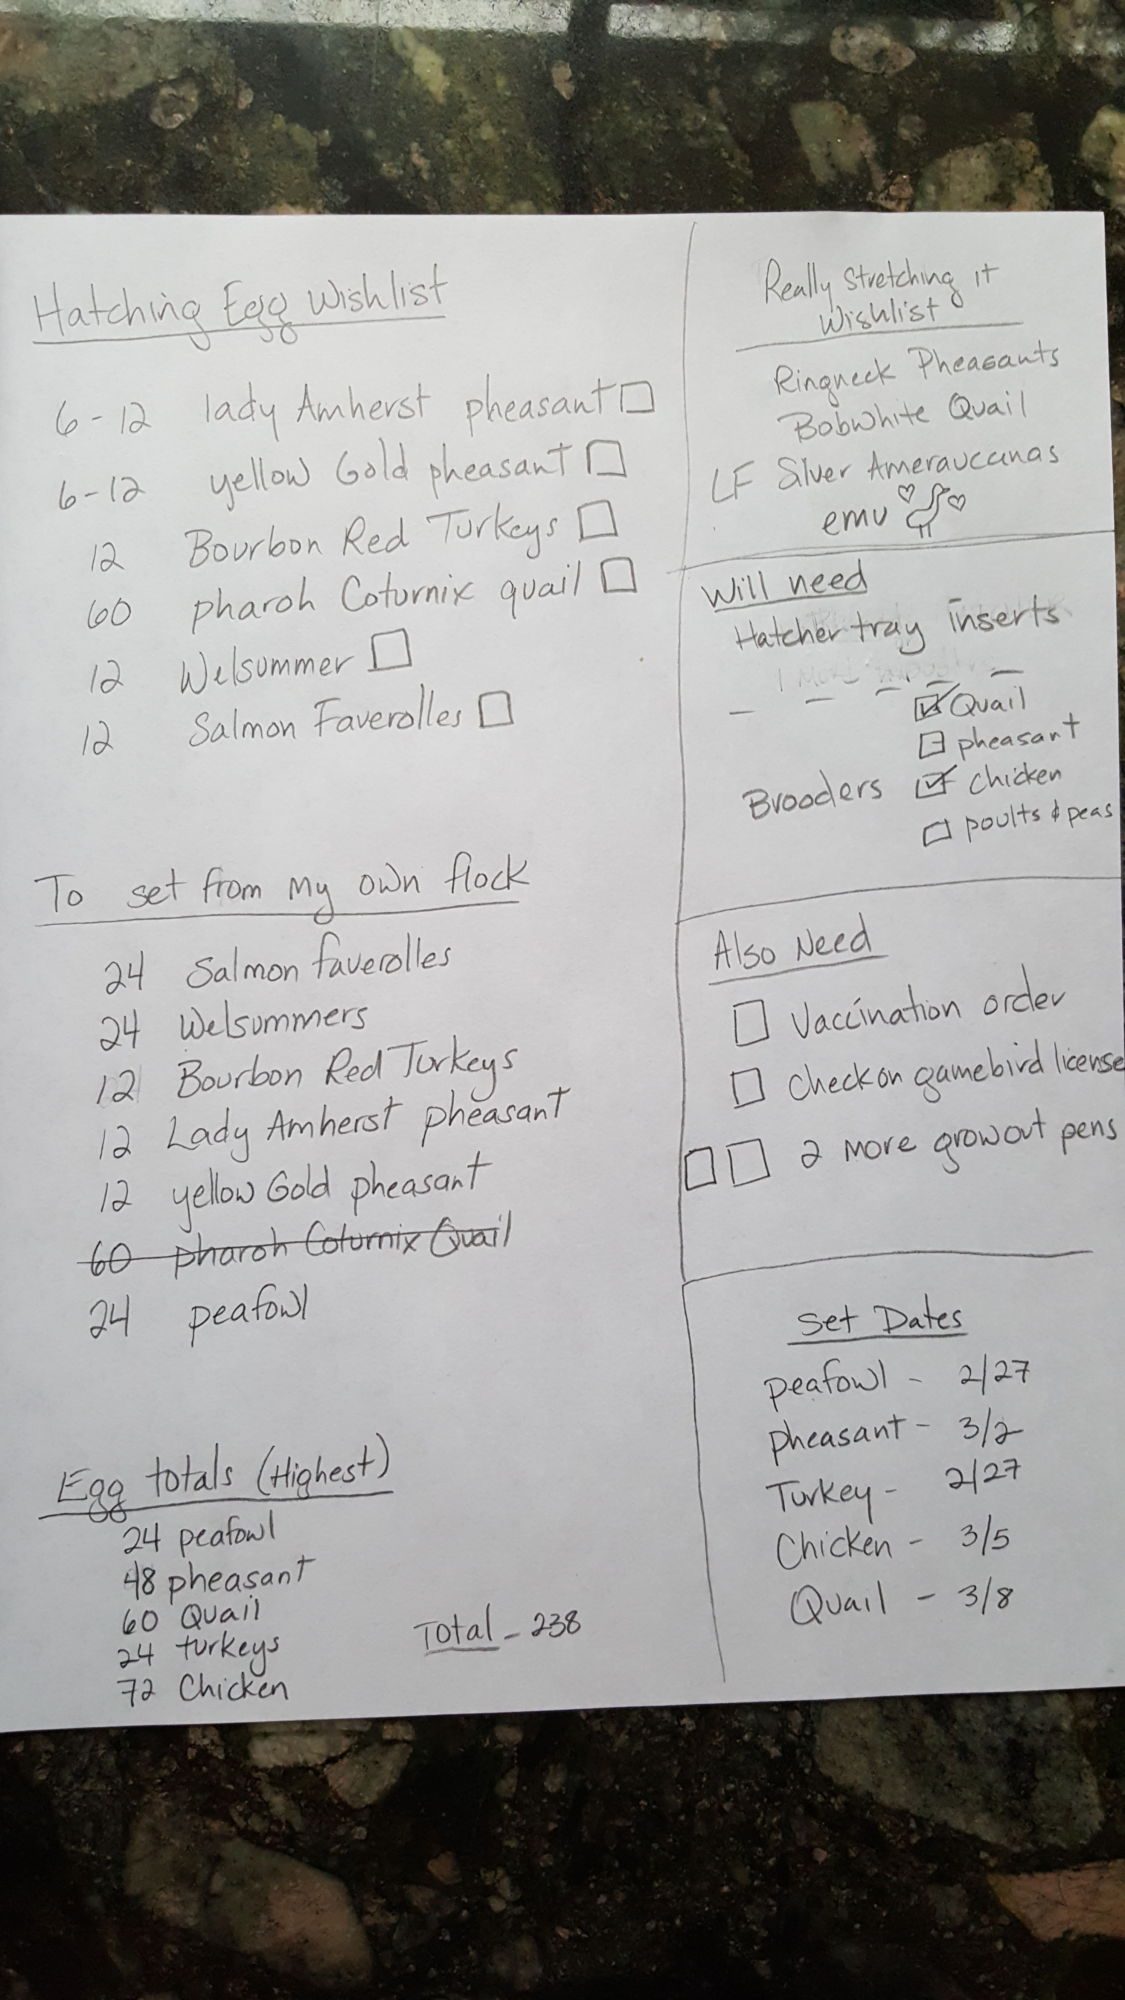 Hatching Egg Wishlist
6-12 lady Amherst pheasant
6-12 yellow Gold pheasant
12 Bourbon Red Turkeys
60 pharoh Coturnix quail
12 Welsummer
12 Salmon Faverolles
To set from my own flock
24 Salmon faverolles
24 Welsummers
12 Bourbon Red Turkeys
12 Lady Amherst pheasant
12 yellow Gold pheasant
60 pharoh Coturnix Quail
24 peafowl
Egg totals (Highest)
24 peafowl
48 pheasant
60 Quail
24 turkeys
72 Chicken
Total - 238
Really Stretching it
Wishlist
Ringneck Pheasants
Bobwhite Quail
LF Silver Ameraucanas
emu
Will need
Hatcher tray inserts
Quail
pheasant
Brooders chicken
poults & peas
Also Need
Vaccination order
check on gamebird license
2 more growout pens
Set Dates
peafowl - 2/27
pheasant - 3/2
Turkey - 2/27
Chicken - 3/5
Quail - 3/8